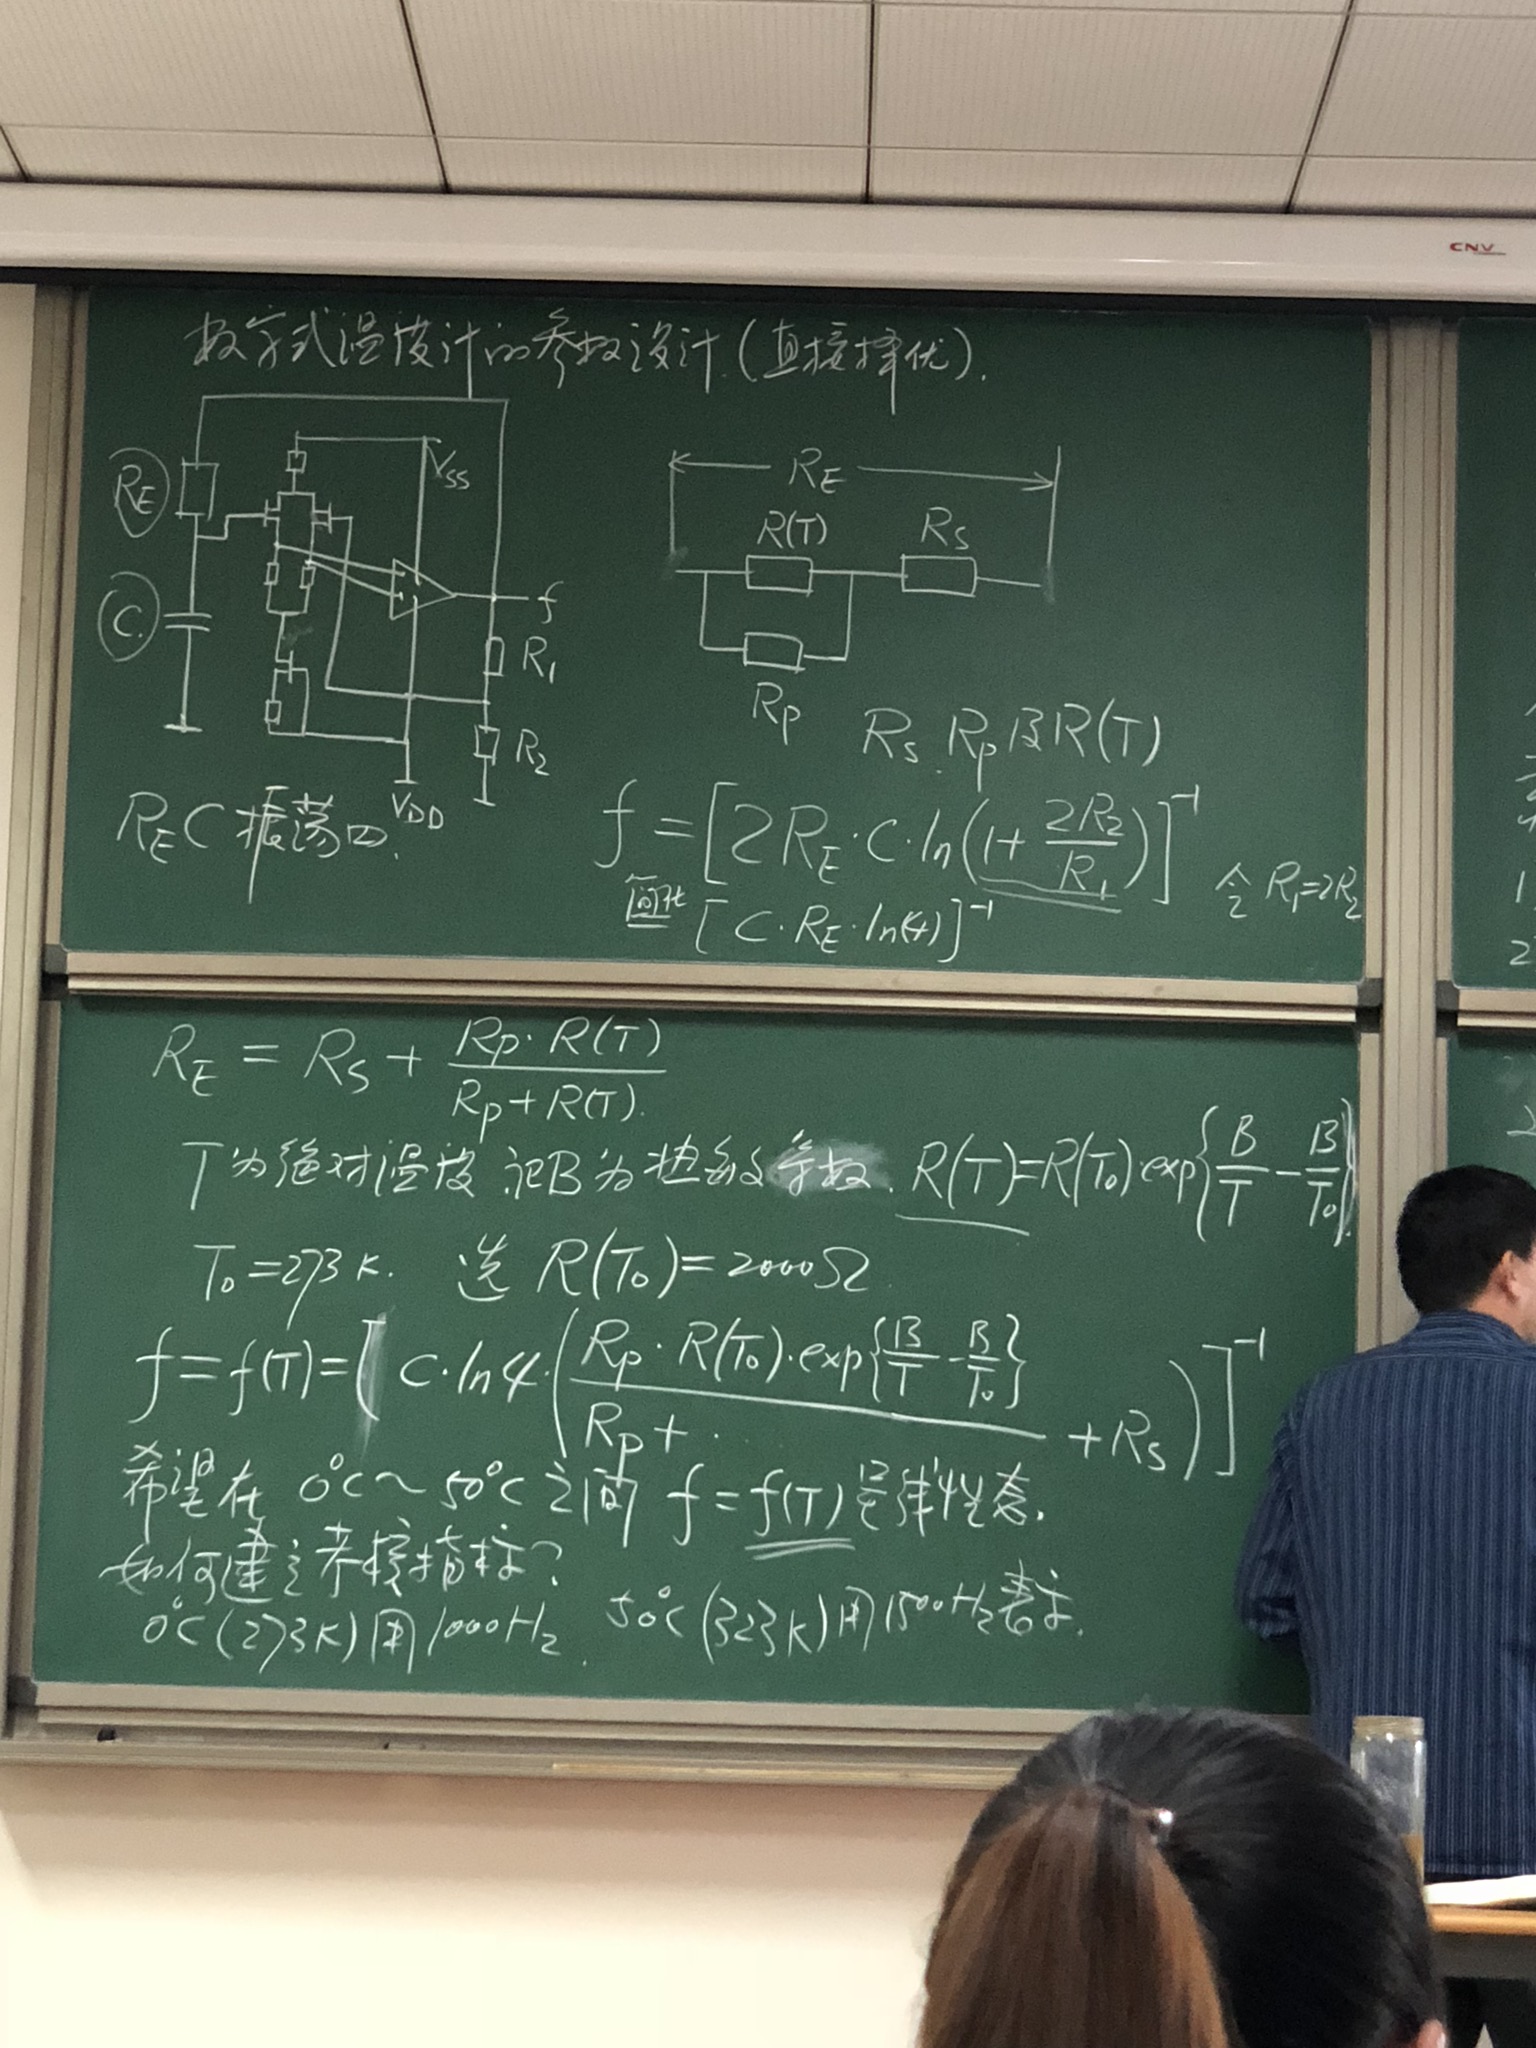 CNV
数字式温度计的参数设计.(直接择优).
RE
C
VSS
f
R1
R2
VDD
REC振荡口.
RE
R(T)
Rs
Rp
Rs. Rp 及 R(T)
f = [2RE·C·ln(1+ 2R2/R1)]⁻¹ 令 R1=2R2
简化 [C·RE·ln(4)]⁻¹
RE = Rs + Rp·R(T) / Rp+R(T).
T为绝对温度.记B为热敏参数. R(T)=R(T0)·exp{B/T - B/T0}.
T0=273K. 选 R(T0)=2000Ω.
f=f(T)=[C·ln4·(Rp·R(T0)·exp{B/T - B/T0} / Rp+... +Rs)]⁻¹
希望在 0°C~50°C之间 f=f(T)呈线性态.
如何建立考核指标?
0°C(273K)用1000Hz. 50°C(323K)用1500Hz表示.
1
2